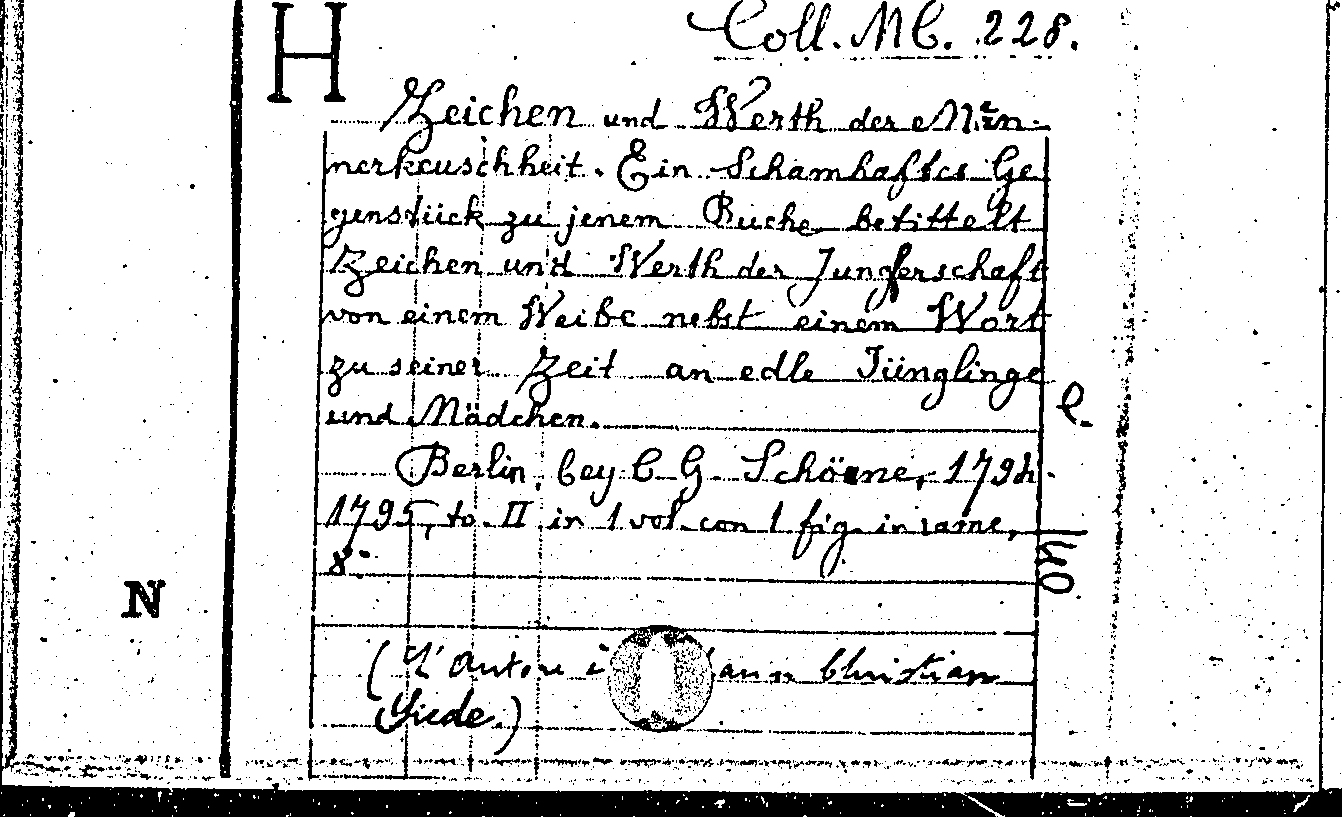 H
Coll. MC. 228.
Zeichen und Werth der Män-
nerkeuschheit. Ein Schamhaftes Ge
genstück zu jenem Buche betittelt
Zeichen und Werth der Jungferschaft
von einem Weibe nebst einem Wort
zu seiner Zeit an edle Jünglinge
und Mädchen.
e.
Berlin, bey C G Schöne, 1794-
1795, to. II in 1 vol con 1 fig. in rame,
8°
N
(L'autore Christian
)